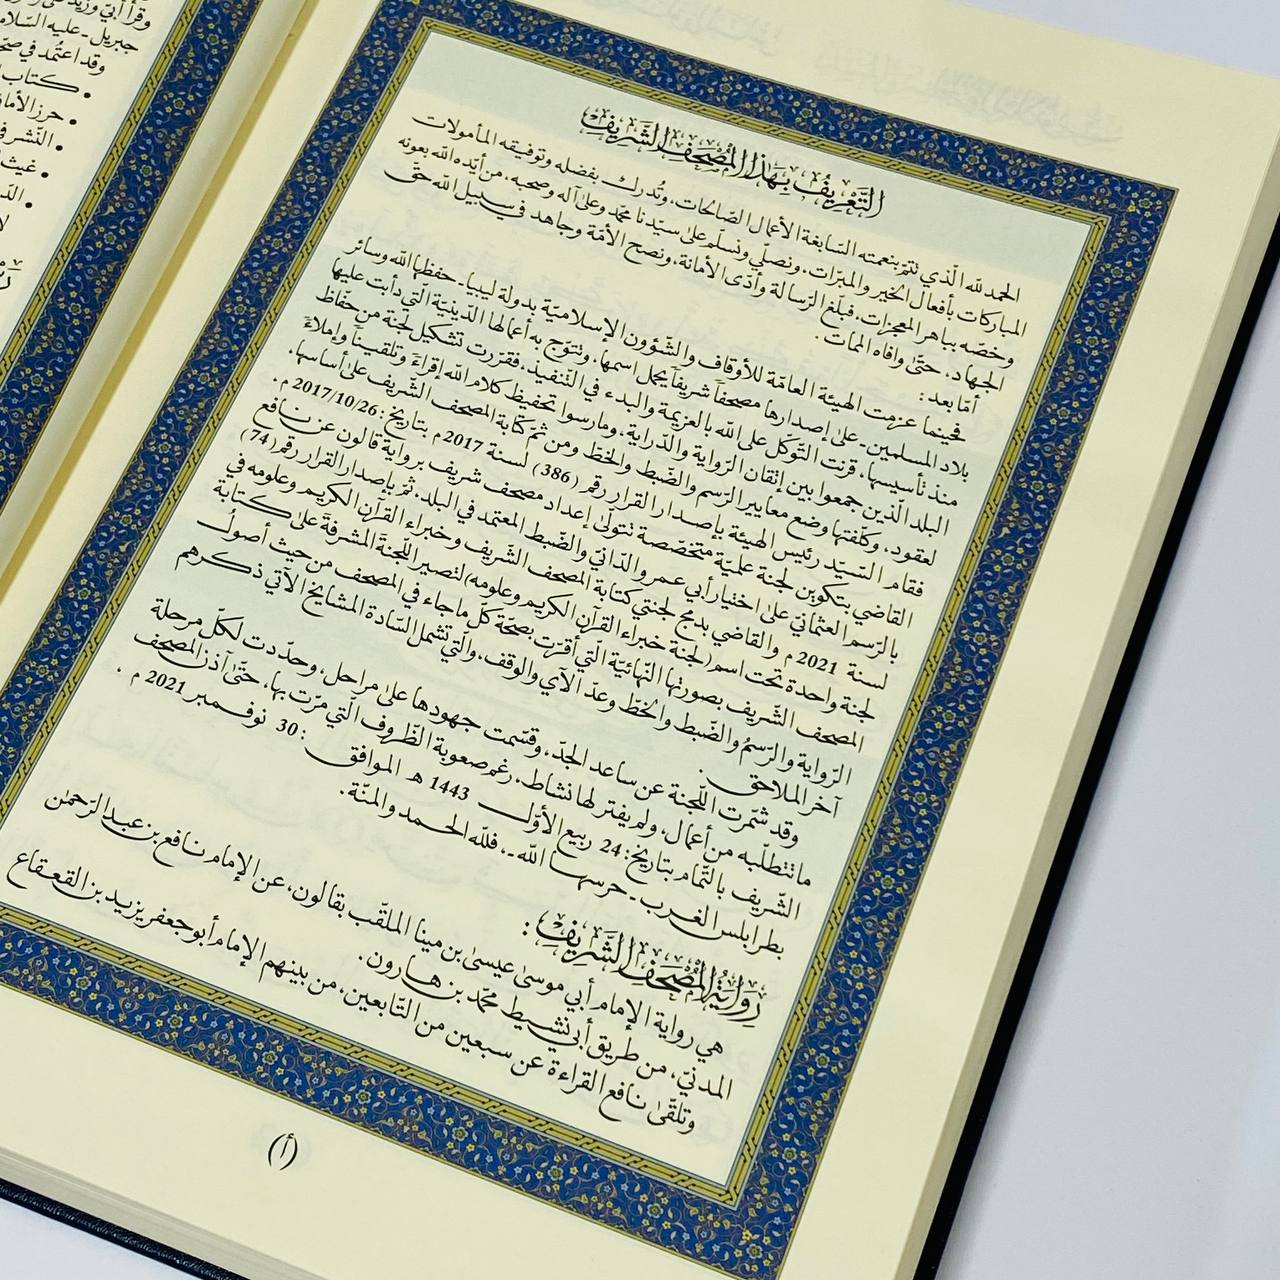 التعريف بهذا المصحف الشريف
الحمد لله الّذي تتمّ بنعمته السّابغة الأعمال الصّالحات، وتُدرك بفضله وتوفيقه المأمولات
المباركات بأفعال الخير والمبرّات، ونصلّي ونسلّم على سيّدنا محمّد وعلى آله وصحبه، من أيّده الله بعونه
وخصّه بباهر المعجزات، فبلّغ الرّسالة وأدّى الأمانة، ونصح الأمّة وجاهد في سبيل الله حقّ
الجهاد، حتّى وافاه الممات.
أمّا بعد:
فحينما عزمت الهيئة العامّة للأوقاف والشّؤون الإسلاميّة بدولة ليبيا - حفظها الله وسائر
بلاد المسلمين - على إصدارها مصحفاً شريفاً يحمل اسمها، وتتوّج به أعمالها الدّينيّة الّتي دأبت عليها
منذ تأسيسها، قرنت التّوكّل على الله بالعزيمة والبدء في التّنفيذ، فقرّرت تشكيل لجنة من حفّاظ
البلد الّذين جمعوا بين إتقان الرّواية والدّراية، ومارسوا تحفيظ كلام الله إقراءً وتلقيناً وإملاءً
لعقود، وكلّفتها وضع معايير الرّسم والضّبط والخطّ ومن ثمّ كتابة المصحف الشّريف على أساسها.
فقام السّيّد رئيس الهيئة بإصدار القرار رقم (386) لسنة 2017م بتاريخ: 2017/10/26م.
القاضي بتكوين لجنة علميّة متخصّصة تتولّى إعداد مصحف شريف برواية قالون عن نافع
بالرّسم العثماني على اختيار أبي عمرو الدّاني والضّبط المعتمد في البلد. ثمّ بإصدار القرار رقم (74)
لسنة 2021م والقاضي بدمج لجنتي كتابة المصحف الشّريف وخبراء القرآن الكريم وعلومه في
لجنة واحدة تحت اسم (لجنة خبراء القرآن الكريم وعلومه) لتصير اللّجنة المشرفة على كتابة
المصحف الشّريف بصورتها النّهائيّة الّتي أقرّت بصحّة كلّ ما جاء في المصحف من حيث أصولُ
الرّواية والرّسمُ والضّبط والخطّ وعدّ الآي والوقف، والّتي تشمل السّادة المشايخ الآتي ذكرهم
آخر الملاحق.
وقد شمّرت اللّجنة عن ساعد الجدّ، وقسّمت جهودها على مراحل، وحدّدت لكلّ مرحلة
ما تتطلّبه من أعمال، ولم يفتر لها نشاط، رغم صعوبة الظّروف الّتي مرّت بها، حتّى آذن المصحف
الشّريف بالتّمام بتاريخ: 24 ربيع الأوّل 1443 هـ الموافق: 30 نوفمبر 2021 م.
بطرابلس الغرب - حرسها الله -، فللّه الحمد والمنّة.
رواية المصحف الشّريف:
هي رواية الإمام أبي موسى عيسى بن مينا الملقّب بقالون، عن الإمام نافع بن عبد الرّحمٰن
المدنيّ، من طريق أبي نشيط محمّد بن هارون.
وتلقّى نافع القراءة عن سبعين من التّابعين، من بينهم الإمام أبو جعفر يزيد بن القعقاع
(أ)
جبريل - عليه السّلام
وقد اعتُمد في
• كتاب
• حرز الأماني
• النّشر في
• غيث